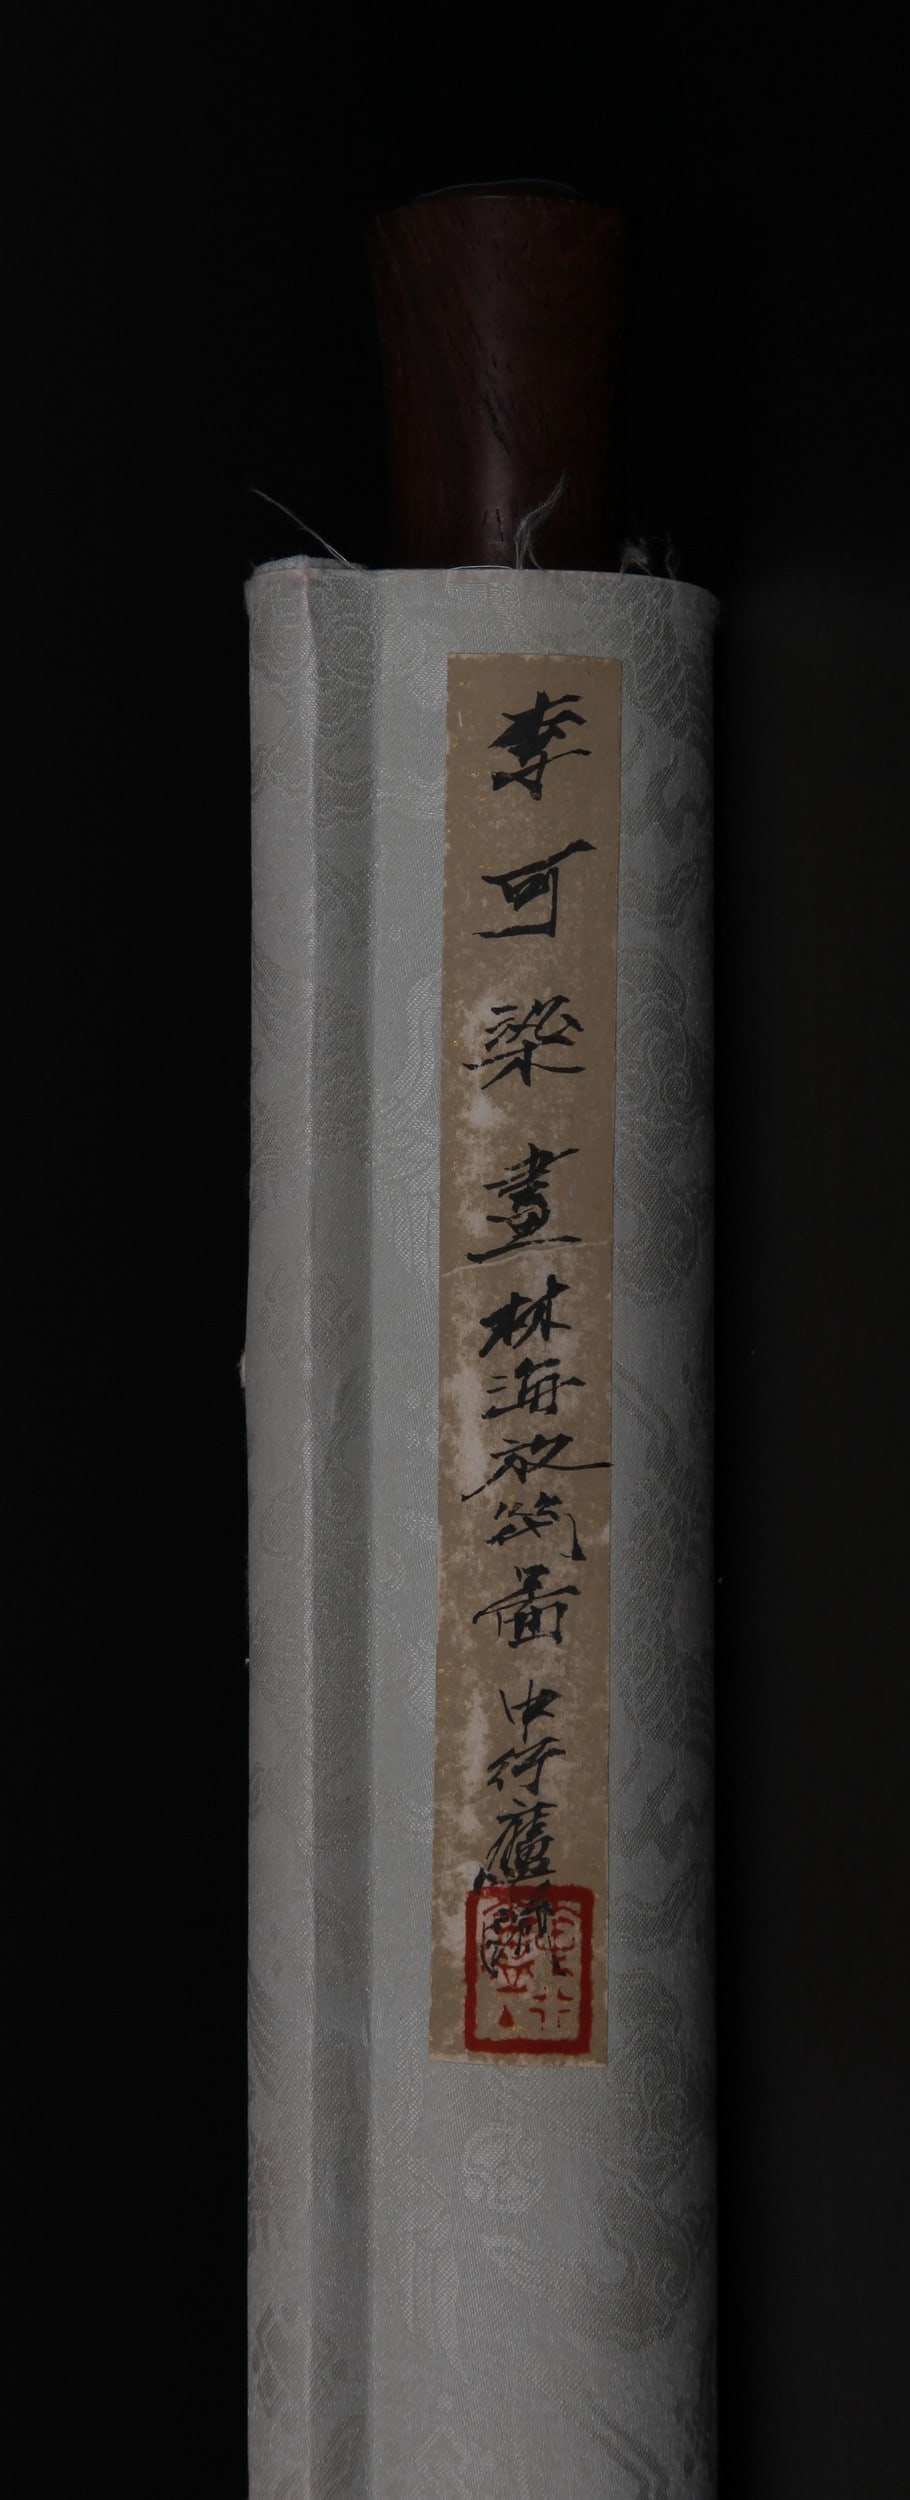 李可染畫林海放筏圖 中行廬